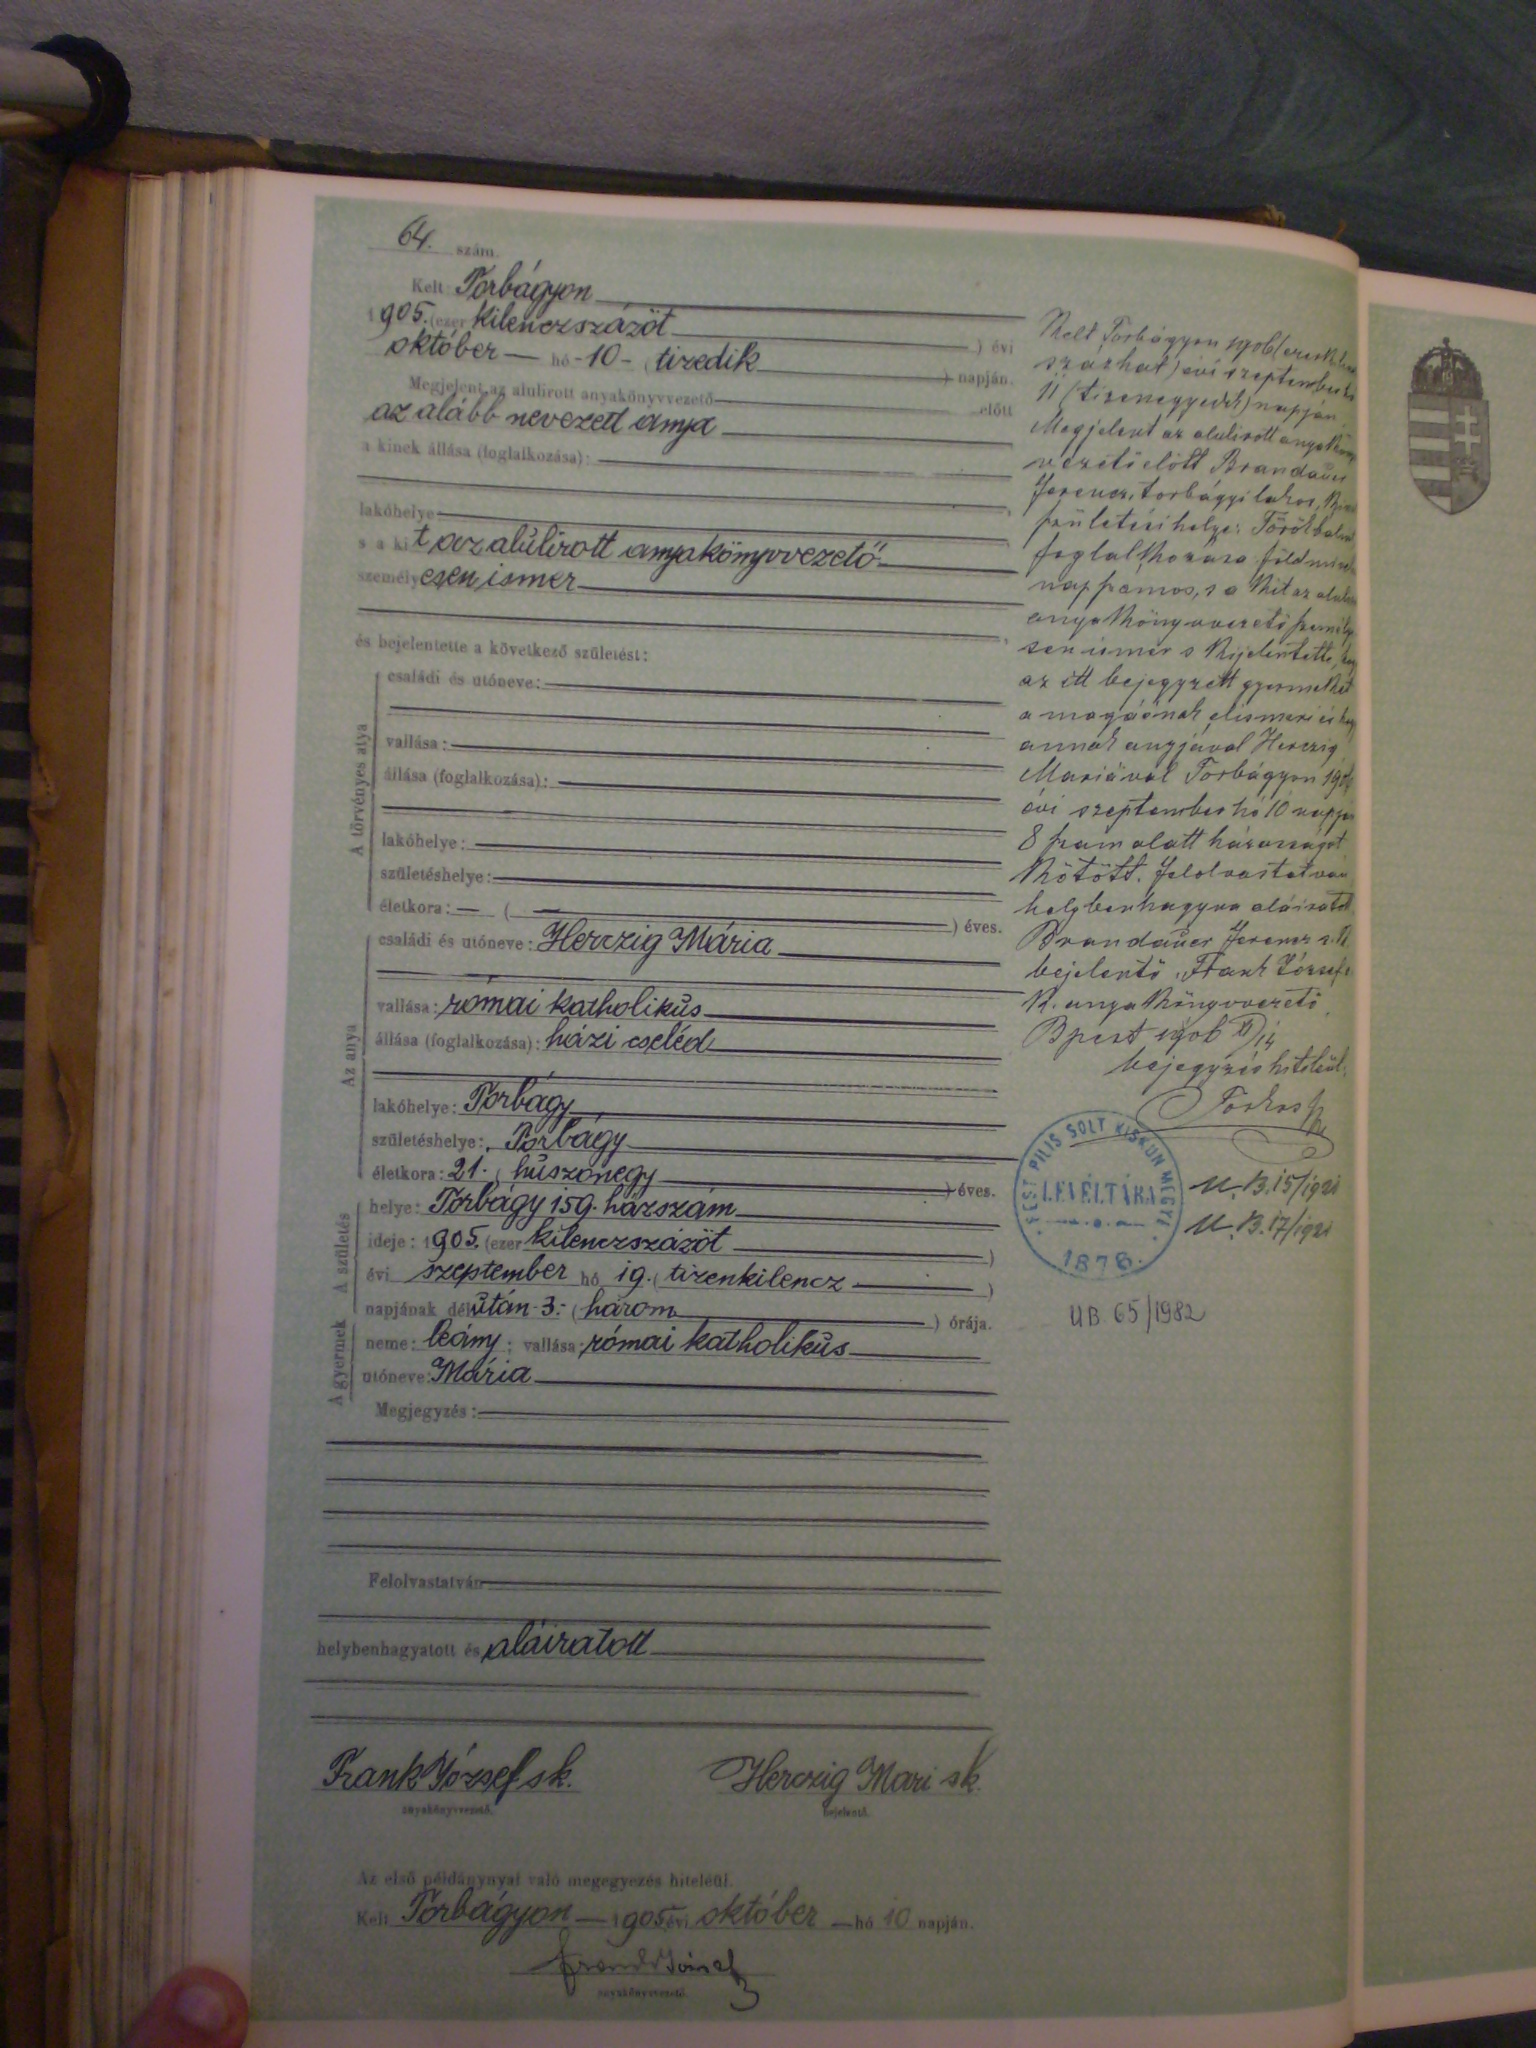 64. szám.
Kelt Torbágyon
1905. (ezer kilenczszázöt ) évi
október — hó - 10 - (tizedik ) napján.
Megjelent az alulirott anyakönyvvezető előtt
az alább nevezett anya
a kinek állása (foglalkozása):
lakóhelye
s a kit az alulirott anyakönyvvezető
személyesen ismer
és bejelentette a következő születést:
A törvényes atya
családi és utóneve:
vallása:
állása (foglalkozása):
lakóhelye:
születéshelye:
életkora: — ( ) éves.
Az anya
családi és utóneve: Herczig Mária
vallása: római katholikus
állása (foglalkozása): házi cseléd
lakóhelye: Torbágy
születéshelye: Torbágy
életkora: 21. ( huszonegy ) éves.
A születés
helye: Torbágy 159. házszám
ideje: 1905. (ezer kilenczszázöt )
évi szeptember hó 19. (tizenkilencz )
napjának délután - 3. - (három ) órája.
A gyermek
neme: leány; vallása: római katholikus
utóneve: Mária
Megjegyzés:
Felolvastatván
helybenhagyatott és aláiratott
Frank József sk.
anyakönyvvezető.
Herczig Mari sk.
bejelentő.
Az első példánynyal való megegyezés hiteléül.
Kelt Torbágyon — 1905 évi október — hó 10 napján.
Frank József
anyakönyvvezető.
Kelt Torbágyon 1906 (ezerkilencz
százhat) évi szeptember hó
11 (tizenegyedik) napján
Megjelent az alulirott anyakönyv
vezető előtt Brandauer
Ferencz, torbágyi lakos,
születési helye: Törökbálint
foglalkozása földmives
napszámos, s a kit az alulirott
anyakönyvvezető személye
sen ismer s kijelentette, hogy
az itt bejegyzett gyermeket
a magáénak elismeri és hogy
annak anyjával Herczig
Máriával Torbágyon 1906
évi szeptember hó 10 napján
8 szám alatt házasságot
kötött. Felolvastatván
helybenhagyva aláiratott
Brandauer Ferencz s. k.
bejelentő, Frank József s.
k. anyakönyvvezető.
Bpest 1906 XI/14
bejegyzés hiteléül:
PEST PILIS SOLT KISKUN MEGYE
LEVÉLTÁRA
1876.
U. B. 15/1921
U. B. 17/1921
UB 65/1982